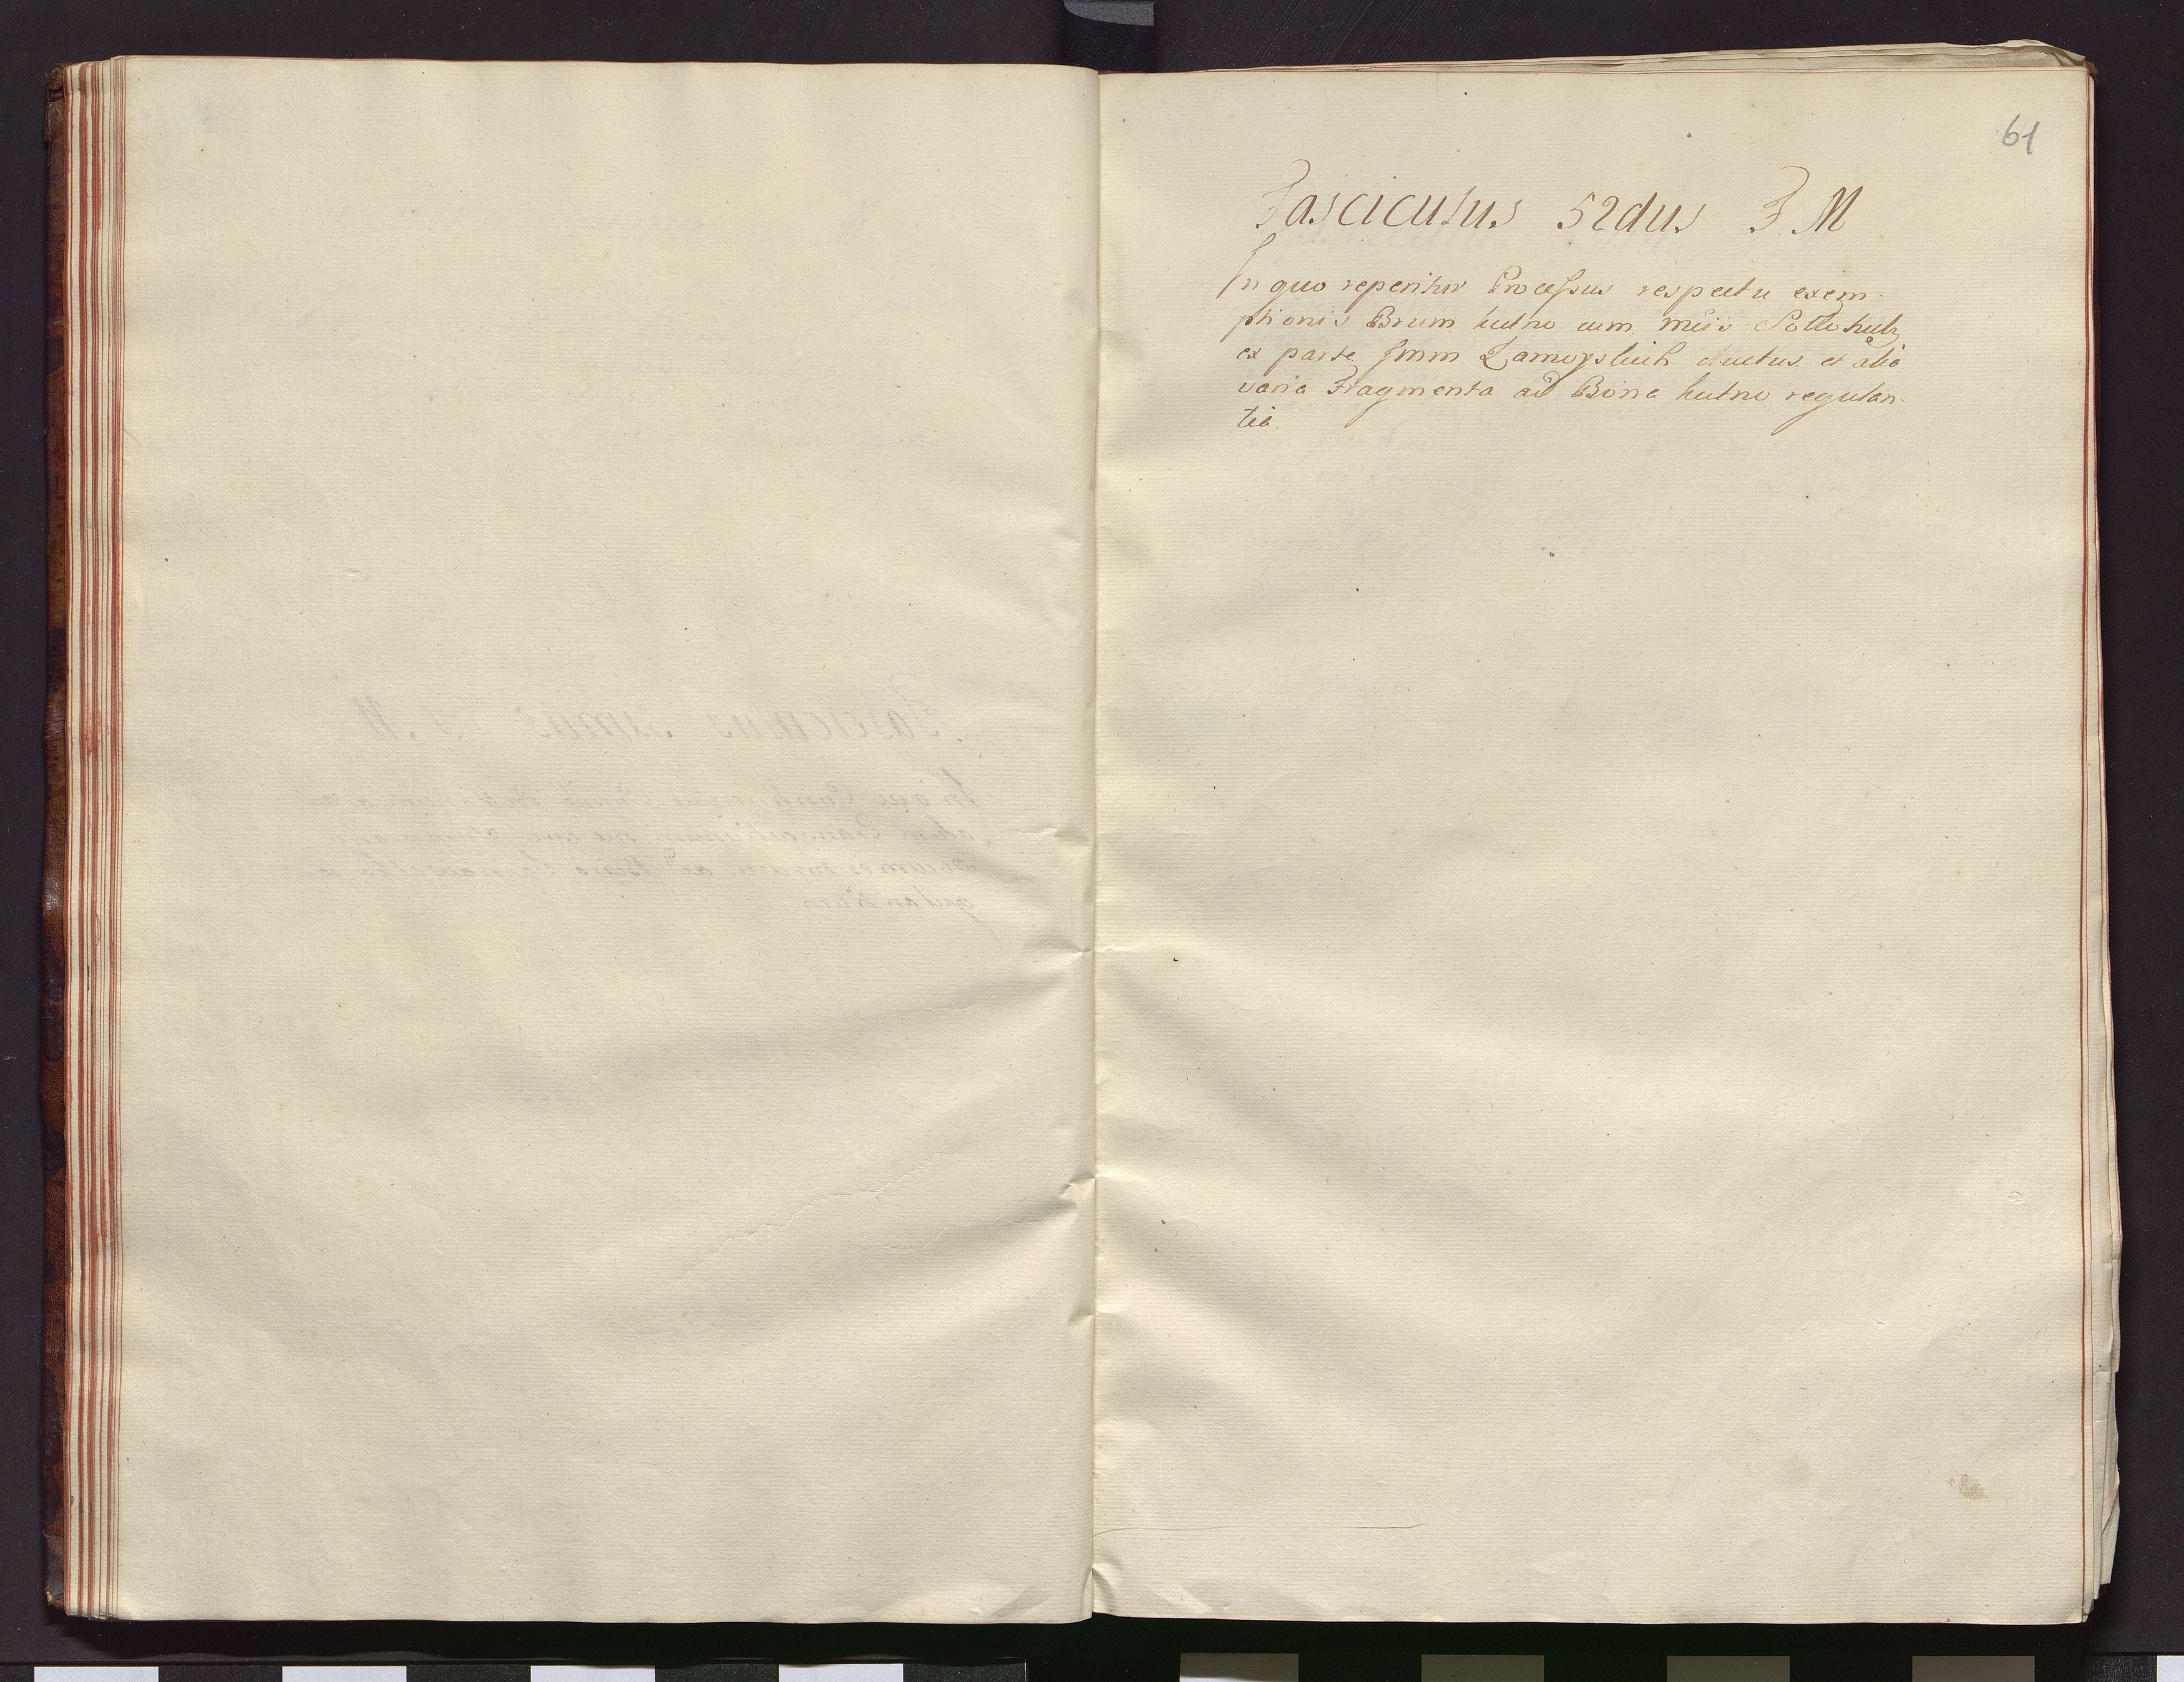 61
Fasciculus 52dus F M
In quo reperitur Processus respectu exem-
ptionis Brum kutno cum
ex parte Jmm Zamoyskich ductus. et alia
varia Fragmenta ad Bona kutno regulan-
tia.